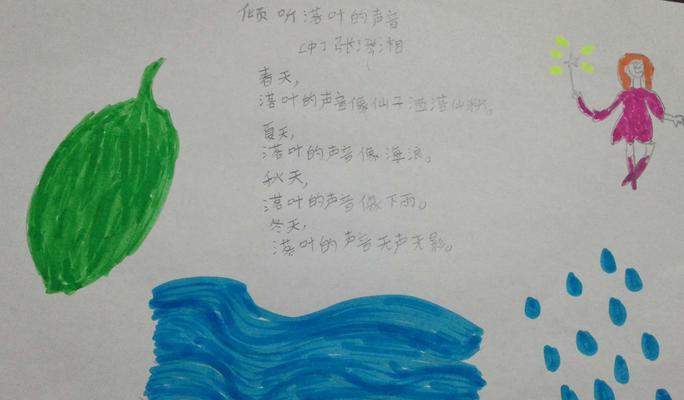 倾听落叶的声音
[中] 张潆湘
春天,
落叶的声音像仙子洒落仙粉。
夏天,
落叶的声音像海浪。
秋天,
落叶的声音像下雨。
冬天,
落叶的声音无声无影。